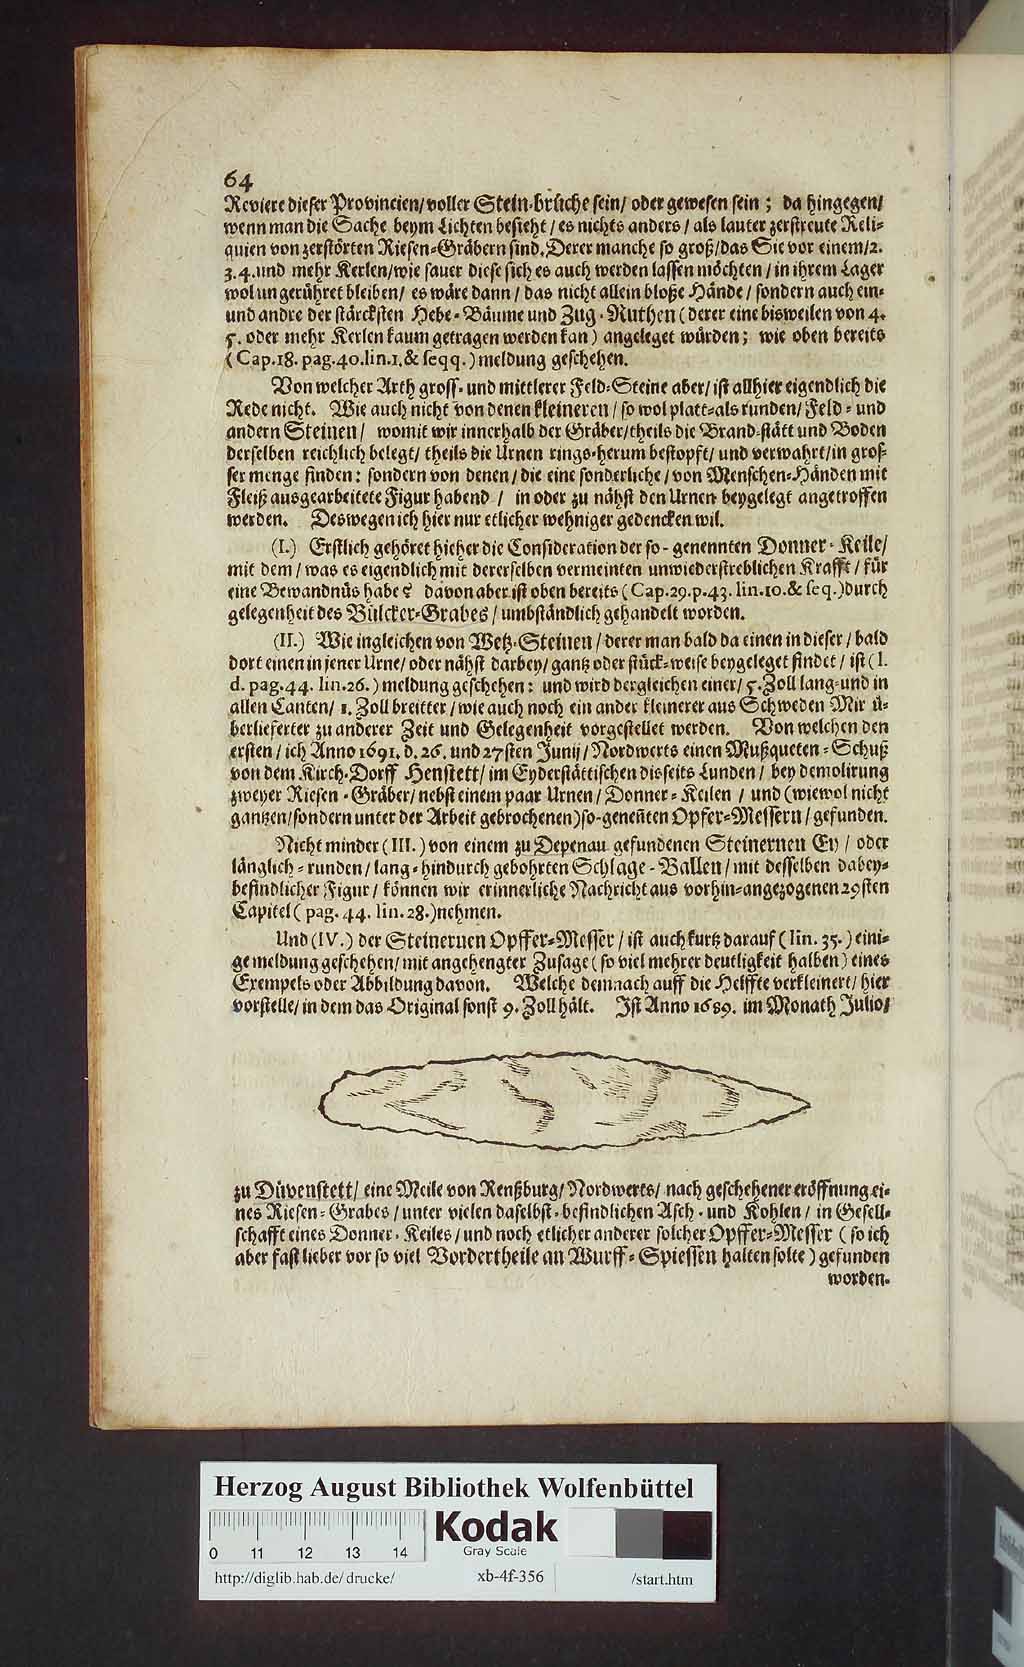 64
Reviere dieser Provincien/ voller Stein-brüche sein/ oder gewesen sein; da hingegen/
wenn man die Sache beym Lichten besieht/ es nichts anders/ als lauter zerstreute Reli-
quien von zerstörten Riesen-Gräbern sind. Derer manche so groß/ das Sie vor einem/ 2.
3. 4. und mehr Kerlen/ wie sauer diese sich es auch werden lassen möchten/ in ihrem Lager
wol ungerühret bleiben/ es wäre dann/ das nicht allein bloße Hände/ sondern auch ein-
und andre der stärcksten Hebe-Bäume und Zug-Ruthen (derer eine bisweilen von 4.
5. oder mehr Kerlen kaum getragen werden kan) angeleget würden; wie oben bereits
(Cap. 18. pag. 40. lin. 1. & seqq.) meldung geschehen.
Von welcher Arth gross- und mittlerer Feld-Steine aber/ ist allhier eigendlich die
Rede nicht. Wie auch nicht von denen kleineren/ so wol platt- als runden/ Feld- und
andern Steinen/ womit wir innerhalb der Gräber/ theils die Brand-stätt und Boden
derselben reichlich belegt/ theils die Urnen rings-herum bestopft/ und verwahrt/ in gros-
ser menge finden: sondern von denen/ die eine sonderliche/ von Menschen-Händen mit
Fleiß ausgearbeitete Figur habend/ in oder zu nähst den Urnen beygelegt angetroffen
werden. Deswegen ich hier nur etlicher wehniger gedencken wil.
(I.) Erstlich gehöret hieher die Consideration der so-genennten Donner-Keile/
mit dem/ was es eigendlich mit dererselben vermeinten unwiederstreblichen Krafft/ für
eine Bewandnüs habe? davon aber ist oben bereits (Cap. 29. p. 43. lin. 10. & seq.) durch
gelegenheit des Bülcker-Grabes/ umbständlich gehandelt worden.
(II.) Wie ingleichen von Wetz-Steinen/ derer man bald da einen in dieser/ bald
dort einen in jener Urne/ oder nähst darbey/ gantz oder stück-weise beygeleget findet/ ist (l.
d. pag. 44. lin. 26.) meldung geschehen: und wird dergleichen einer/ 5. Zoll lang- und in
allen Canten/ 1. Zoll breitter/ wie auch noch ein ander kleinerer aus Schweden Mir ü-
berlieferter zu anderer Zeit und Gelegenheit vorgestellet werden. Von welchen den
ersten/ ich Anno 1691. d. 26. und 27sten Junij/ Nordwerts einen Mußqueten-Schuß
von dem Kirch-Dorff Henstett/ im Eyderstättischen disseits Lunden/ bey demolirung
zweyer Riesen-Gräber/ nebst einem paar Urnen/ Donner-Keilen/ und (wiewol nicht
gantzen/ sondern unter der Arbeit gebrochenen) so-geneñten Opfer-Messern/ gefunden.
Nicht minder (III.) von einem zu Depenau gefundenen Steinernen Ey/ oder
länglich-runden/ lang-hindurch gebohrten Schlage-Ballen/ mit desselben dabey-
befindlicher Figur/ können wir erinnerliche Nachricht aus vorhin-angezogenen 29sten
Capitel (pag. 44. lin. 28.) nehmen.
Und (IV.) der Steinernen Opffer-Messer/ ist auch kurtz darauf (lin. 35.) eini-
ge meldung geschehen/ mit angehengter Zusage (so viel mehrer deutligkeit halben) eines
Exempels oder Abbildung davon. Welche demnach auff die Helffte verkleinert/ hier
vorstelle/ in dem das Original sonst 9. Zoll hält. Ist Anno 1689. im Monath Julio/
zu Düvenstett/ eine Meile von Renßburg/ Nordwerts/ nach geschehener eröffnung ei-
nes Riesen-Grabes/ unter vielen daselbst-befindlichen Asch- und Kohlen/ in Gesell-
schafft eines Donner-Keiles/ und noch etlicher anderer solcher Opffer-Messer (so ich
aber fast lieber vor so viel Vordertheile an Wurff-Spiessen halten solte) gefunden
worden.
Herzog August Bibliothek Wolfenbüttel
0 11 12 13 14
Kodak
Gray Scale
http://diglib.hab.de/drucke/ xb-4f-356 /start.htm